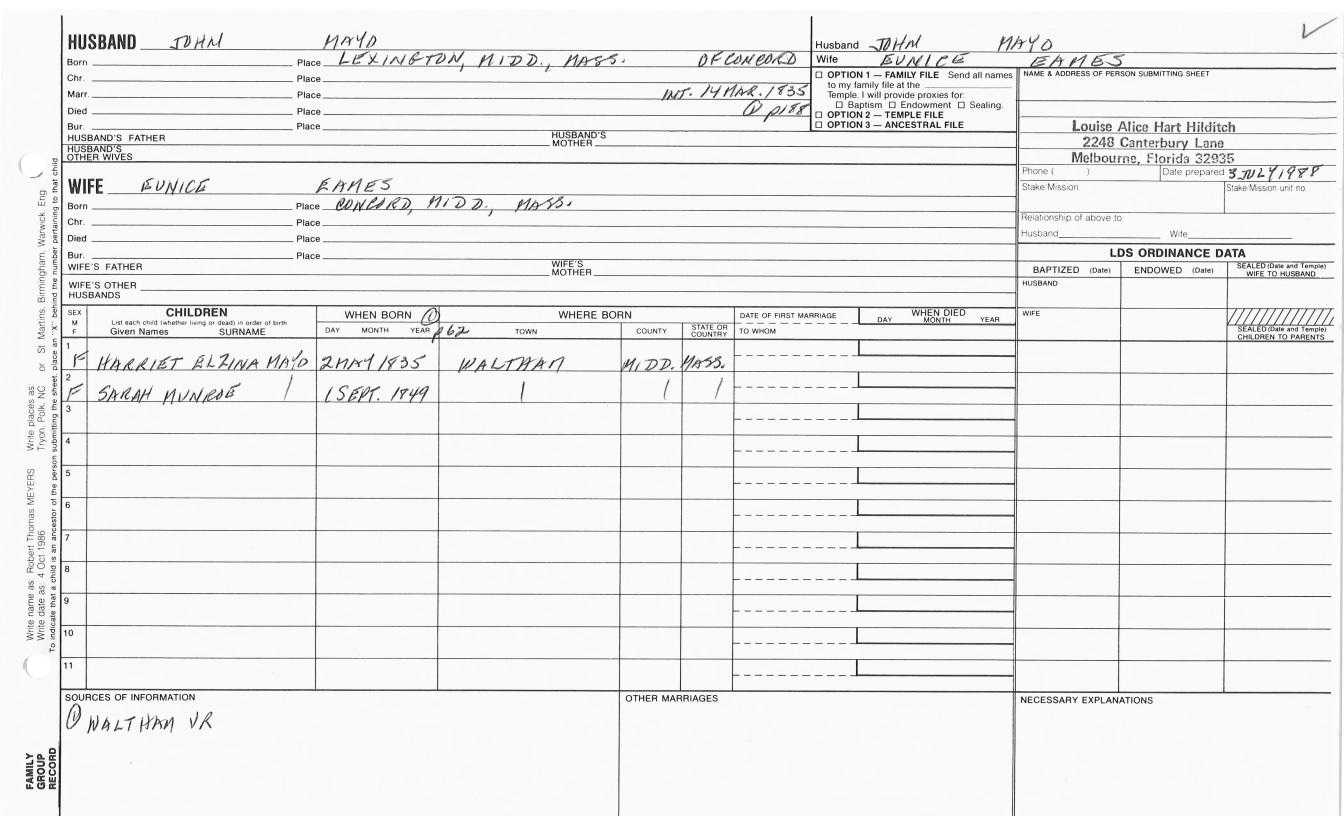 HUSBAND JOHN MAYO
Born Place LEXINGTON, MIDD., MASS. OF CONCORD
Chr. Place
Marr. Place INT. 14 MAR. 1835
Died Place ① p188
Bur. Place
HUSBAND'S FATHER HUSBAND'S MOTHER
HUSBAND'S OTHER WIVES
Husband JOHN MAYO
Wife EUNICE EAMES
☐ OPTION 1 — FAMILY FILE Send all names
to my family file at the
Temple. I will provide proxies for:
☐ Baptism ☐ Endowment ☐ Sealing.
☐ OPTION 2 — TEMPLE FILE
☐ OPTION 3 — ANCESTRAL FILE
NAME & ADDRESS OF PERSON SUBMITTING SHEET
Louise Alice Hart Hilditch
2248 Canterbury Lane
Melbourne, Florida 32935
Phone ( ) Date prepared 3 JULY 1988
Stake Mission Stake Mission unit no.
Relationship of above to:
Husband Wife
WIFE EUNICE EAMES
Born Place CONCORD, MIDD., MASS.
Chr. Place
Died Place
Bur. Place
WIFE'S FATHER WIFE'S MOTHER
WIFE'S OTHER HUSBANDS
LDS ORDINANCE DATA
BAPTIZED (Date) ENDOWED (Date) SEALED (Date and Temple) WIFE TO HUSBAND
HUSBAND
WIFE
SEALED (Date and Temple) CHILDREN TO PARENTS
SEX M F
CHILDREN
List each child (whether living or dead) in order of birth
Given Names SURNAME
WHEN BORN ① p62
DAY MONTH YEAR
WHERE BORN
TOWN COUNTY STATE OR COUNTRY
DATE OF FIRST MARRIAGE
TO WHOM
WHEN DIED
DAY MONTH YEAR
1 F HARRIET ELZINA MAYO 2 MAY 1835 WALTHAM MIDD. MASS.
2 F SARAH MUNROE | 1 SEPT. 1849 | | |
3
4
5
6
7
8
9
10
11
SOURCES OF INFORMATION
① WALTHAM VR
OTHER MARRIAGES
NECESSARY EXPLANATIONS
FAMILY GROUP RECORD
Write name as: Robert Thomas MEYERS Write places as: Tryon, Polk, NC or St Martins, Birmingham, Warwick, Eng
Write date as: 4 Oct 1986
To indicate that a child is an ancestor of the person submitting the sheet, place an "X" behind the number pertaining to that child